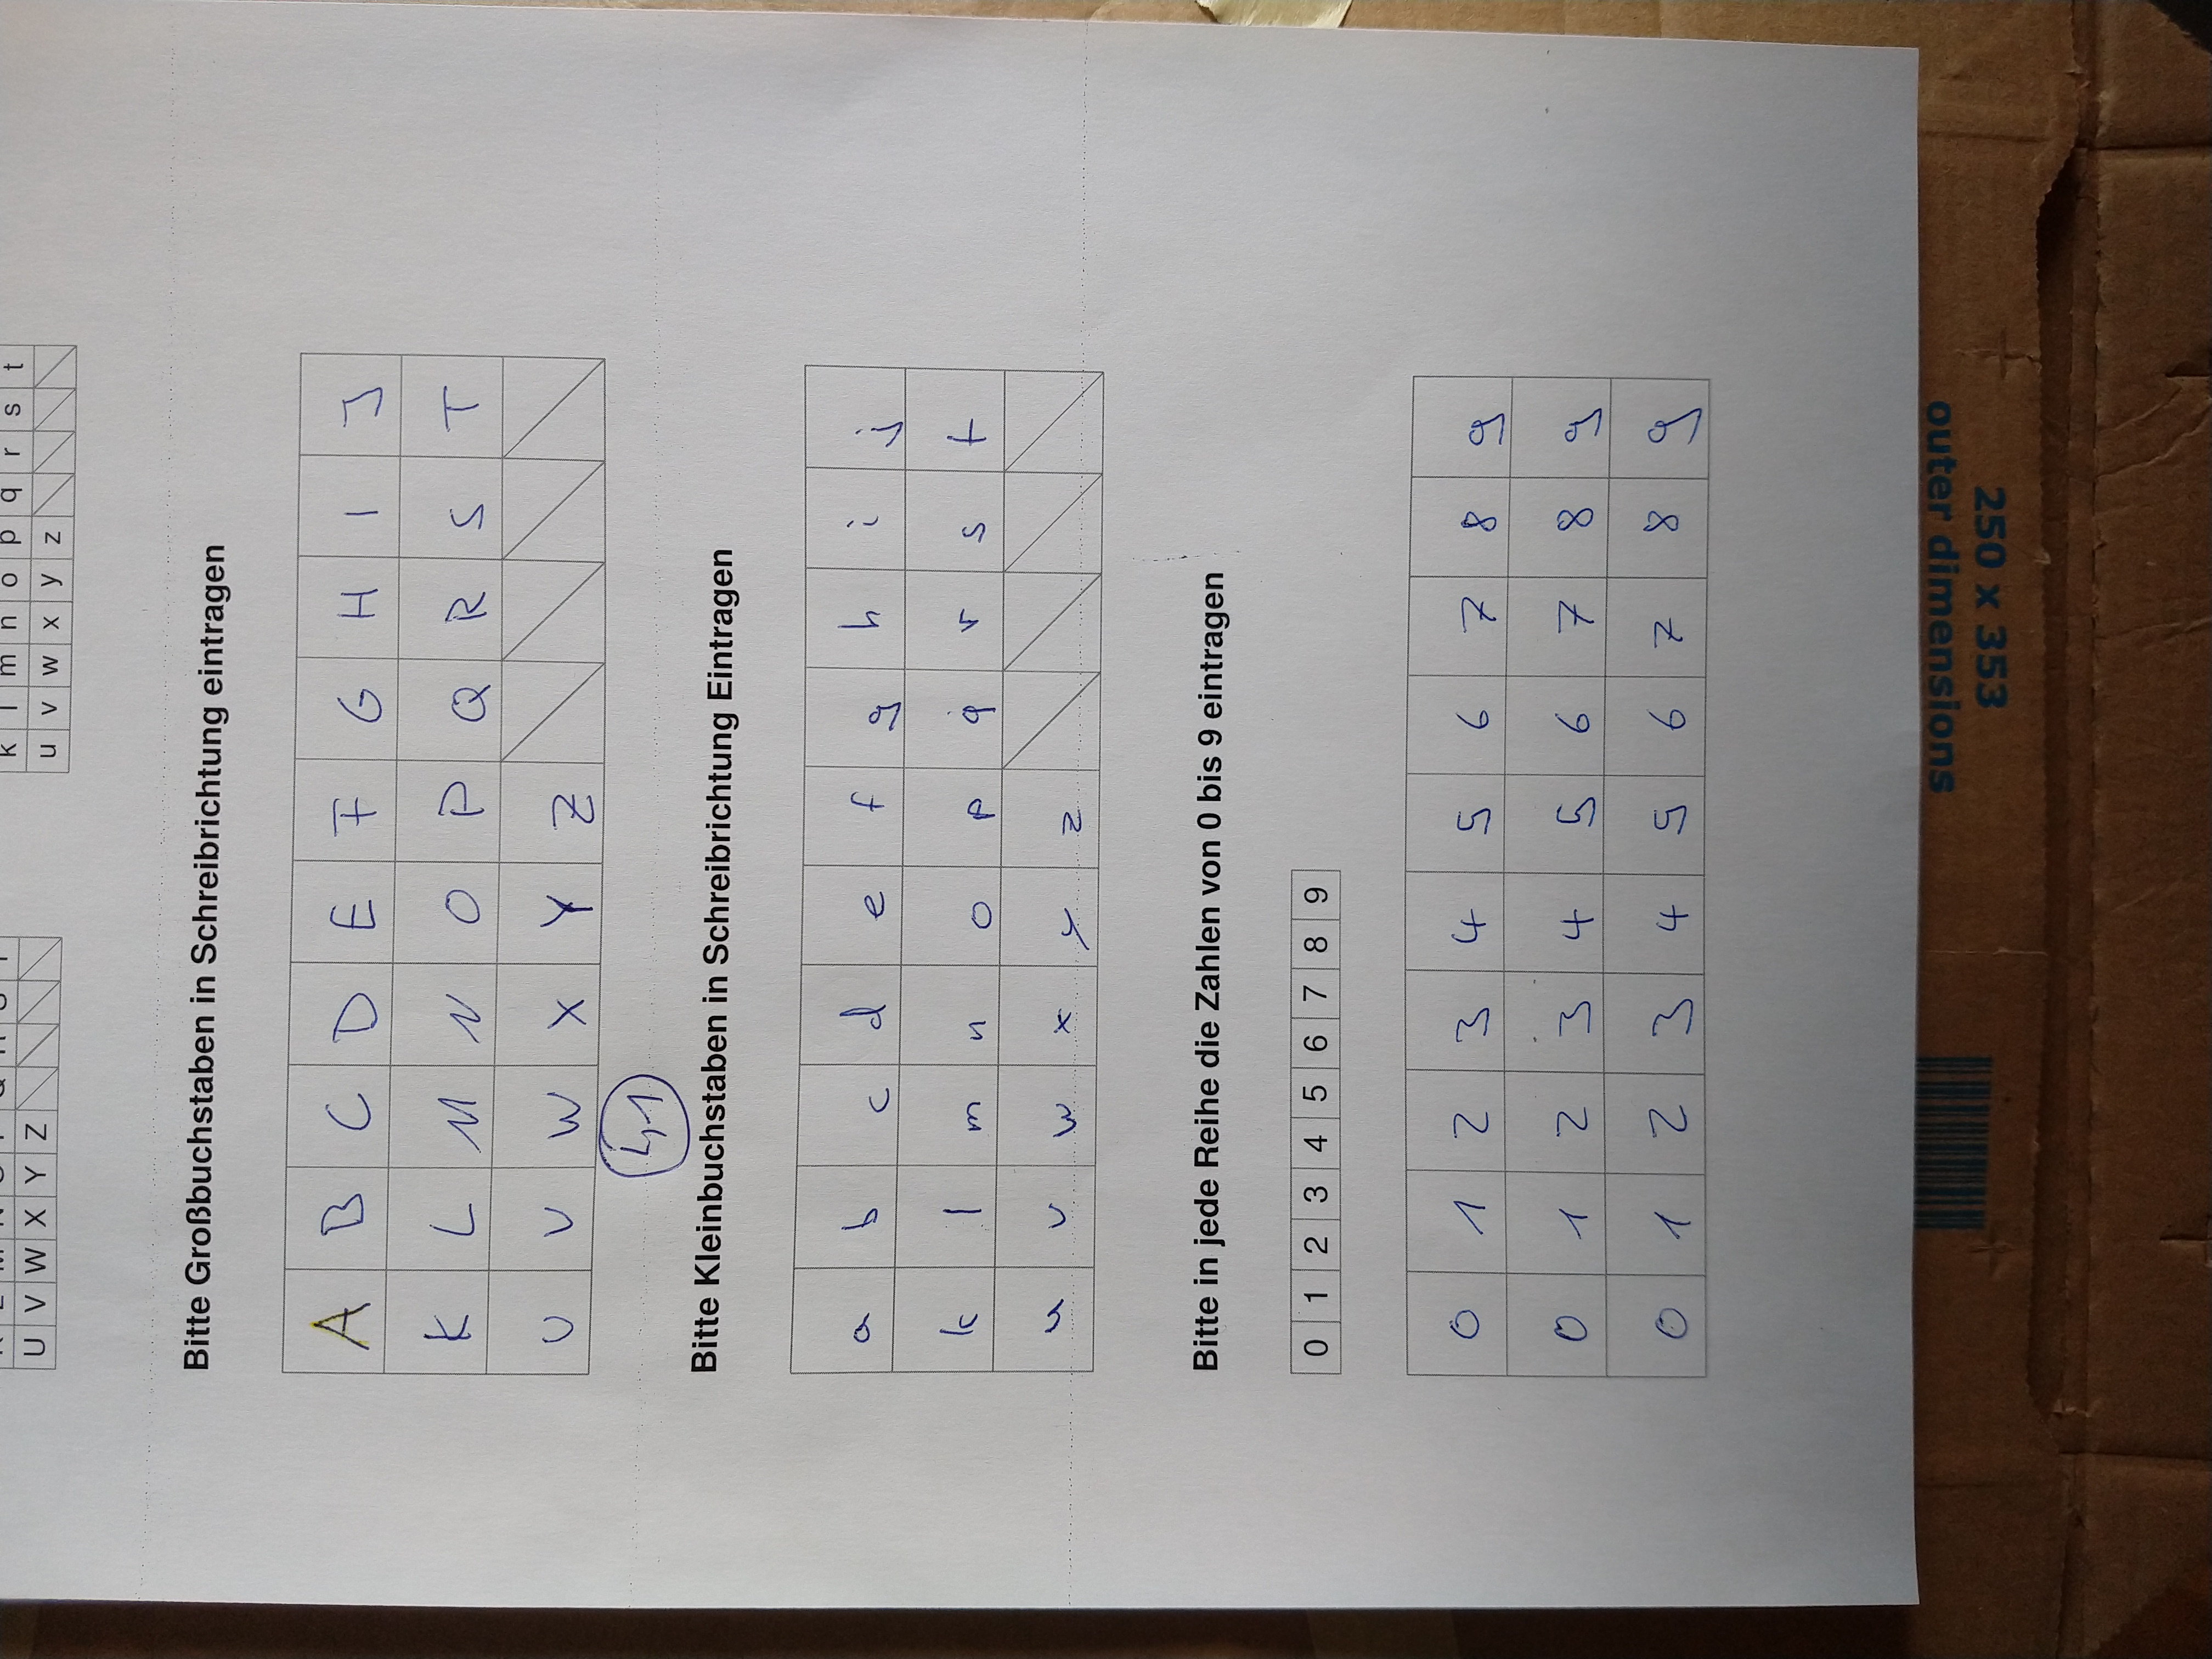 U V W X Y Z
k l m n o p q r s t
u v w x y z
Bitte Großbuchstaben in Schreibrichtung eintragen
A B C D E F G H I J
K L M N O P Q R S T
U V W X Y Z
Bitte Kleinbuchstaben in Schreibrichtung Eintragen
a b c d e f g h i j
k l m n o p q r s t
u v w x y z
Bitte in jede Reihe die Zahlen von 0 bis 9 eintragen
0 1 2 3 4 5 6 7 8 9
0 1 2 3 4 5 6 7 8 9
0 1 2 3 4 5 6 7 8 9
0 1 2 3 4 5 6 7 8 9
outer dimensions
250 x 353